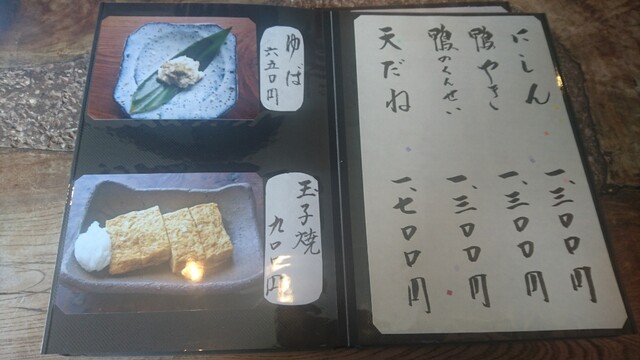 にしん 一、三〇〇円
鴨やき 一、三〇〇円
鴨のくんせい 一、三〇〇円
天だね 一、七〇〇円
ゆば
六五〇円
玉子焼
九〇〇円